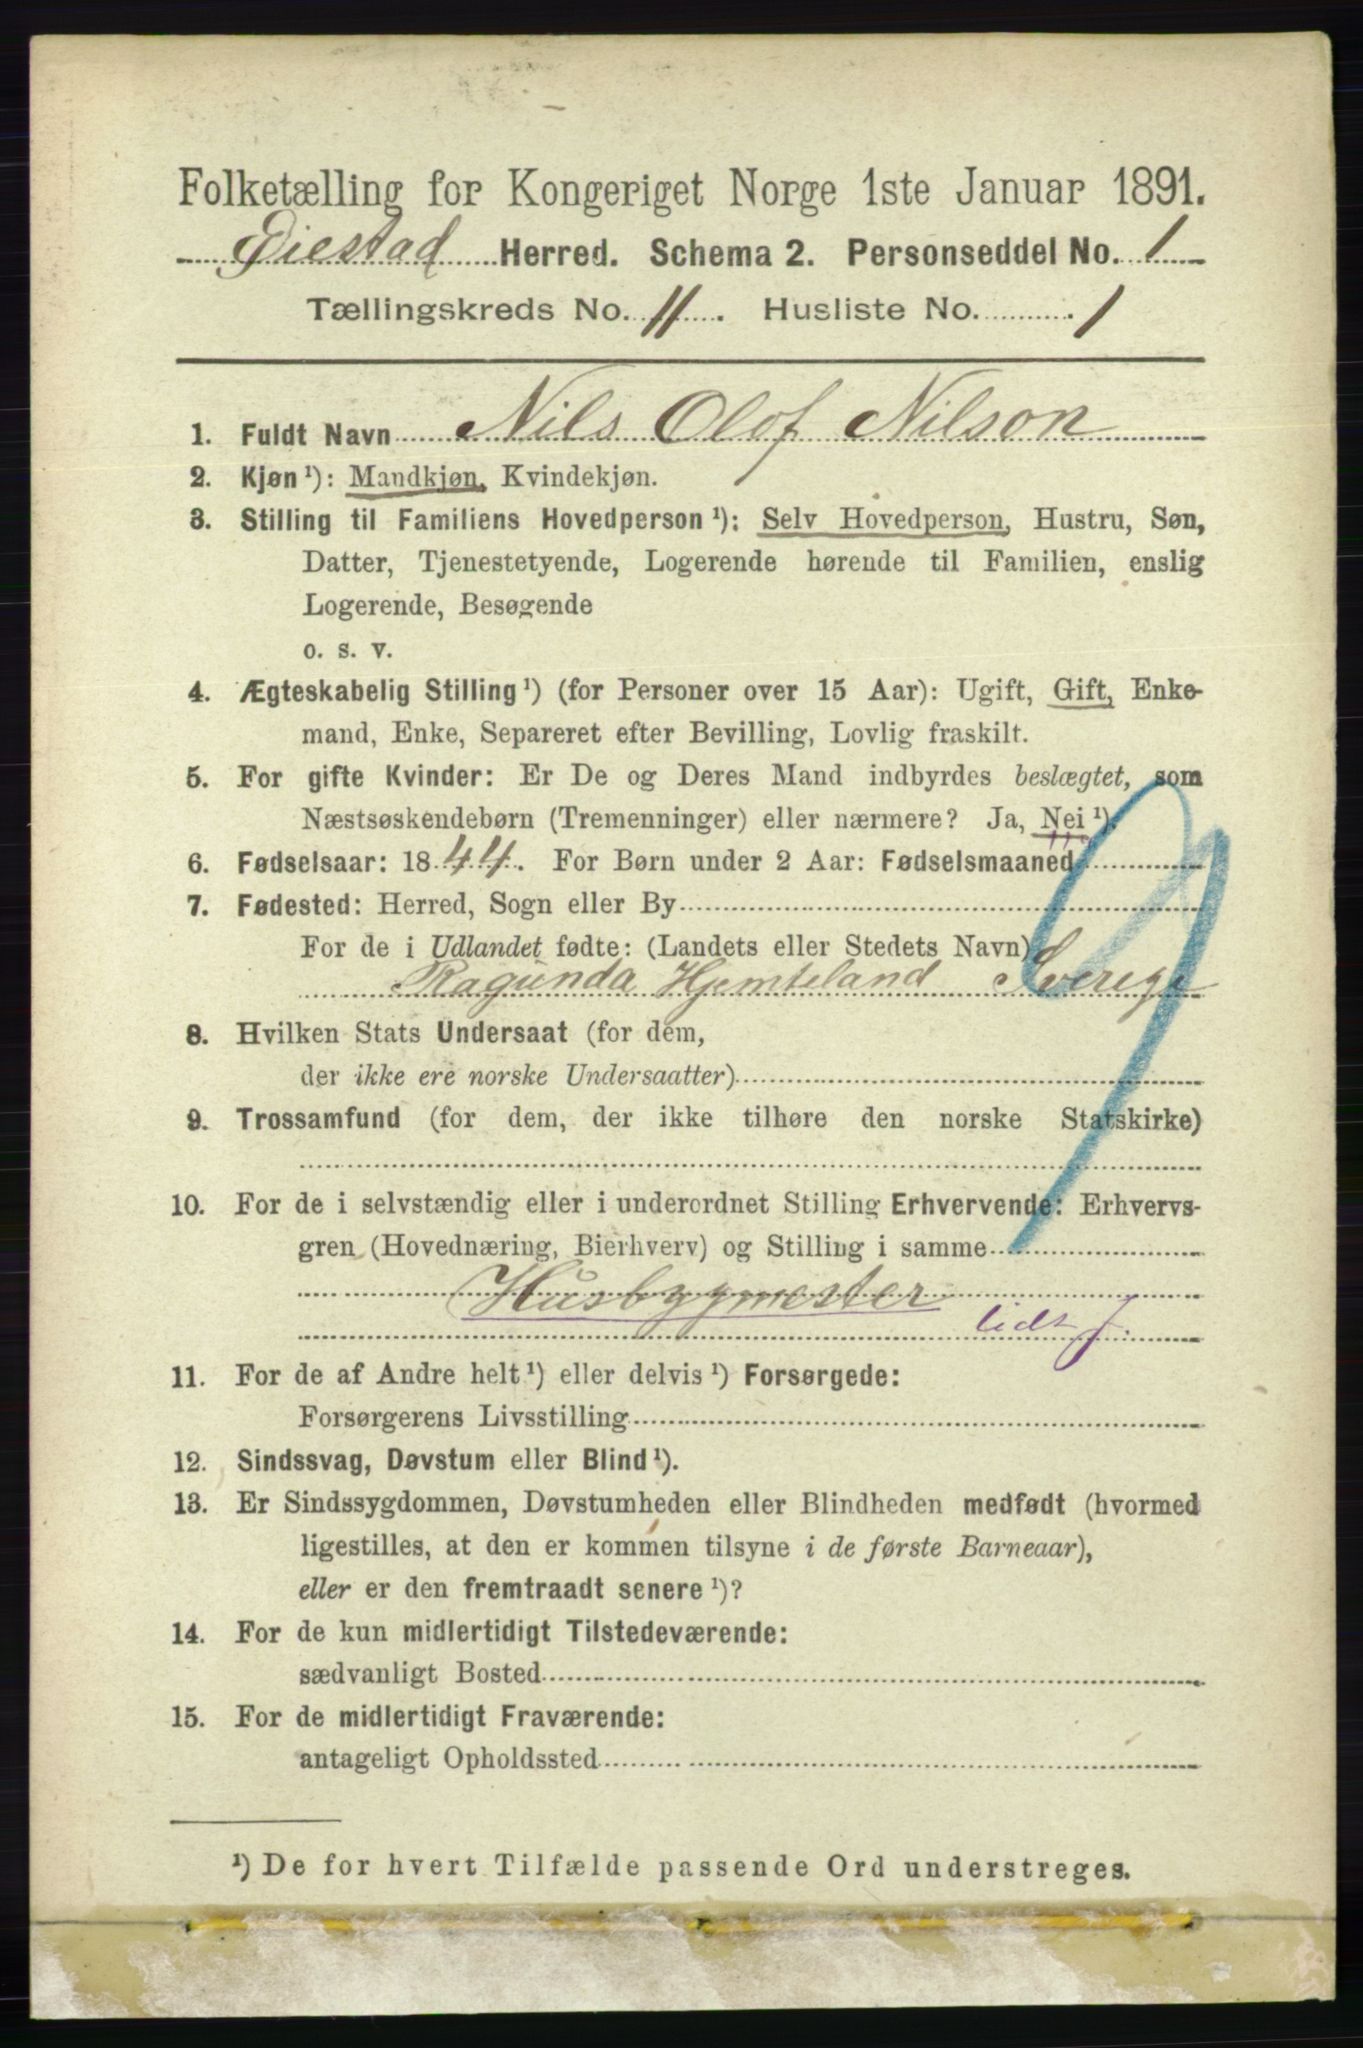 Folketælling for Kongeriget Norge 1ste Januar 1891.
Øiestad Herred. Schema 2. Personseddel No. 1
Tællingskreds No. 11. Husliste No. 1
1. Fuldt Navn Nils Olof Nilson
2. Kjøn ¹): Mandkjøn, Kvindekjøn.
3. Stilling til Familiens Hovedperson ¹): Selv Hovedperson, Hustru, Søn,
Datter, Tjenestetyende, Logerende hørende til Familien, enslig
Logerende, Besøgende
o. s. v.
4. Ægteskabelig Stilling ¹) (for Personer over 15 Aar): Ugift, Gift, Enke-
mand, Enke, Separeret efter Bevilling, Lovlig fraskilt.
5. For gifte Kvinder: Er De og Deres Mand indbyrdes beslægtet, som
Næstsøskendebørn (Tremenninger) eller nærmere? Ja, Nei ¹).
6. Fødselsaar: 1844. For Børn under 2 Aar: Fødselsmaaned
7. Fødested: Herred, Sogn eller By
For de i Udlandet fødte: (Landets eller Stedets Navn)
Ragunda Hjemteland Sverige
8. Hvilken Stats Undersaat (for dem,
der ikke ere norske Undersaatter)
9. Trossamfund (for dem, der ikke tilhøre den norske Statskirke)
10. For de i selvstændig eller i underordnet Stilling Erhvervende: Erhvervs-
gren (Hovednæring, Bierhverv) og Stilling i samme
Husbygmester
lidt J.
11. For de af Andre helt ¹) eller delvis ¹) Forsørgede:
Forsørgerens Livsstilling
12. Sindssvag, Døvstum eller Blind ¹).
13. Er Sindssygdommen, Døvstumheden eller Blindheden medfødt (hvormed
ligestilles, at den er kommen tilsyne i de første Barneaar),
eller er den fremtraadt senere ¹)?
14. For de kun midlertidigt Tilstedeværende:
sædvanligt Bosted
15. For de midlertidigt Fraværende:
antageligt Opholdssted
¹) De for hvert Tilfælde passende Ord understreges.